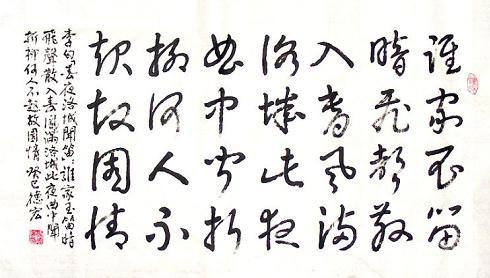 誰家玉笛
暗飛聲散
入春風滿
洛城此夜
曲中聞折
柳何人不
起故園情
李白「春夜洛城聞笛」：誰家玉笛暗
飛聲散入春風滿洛城此夜曲中聞
折柳何人不起故園情 癸巳 德宏